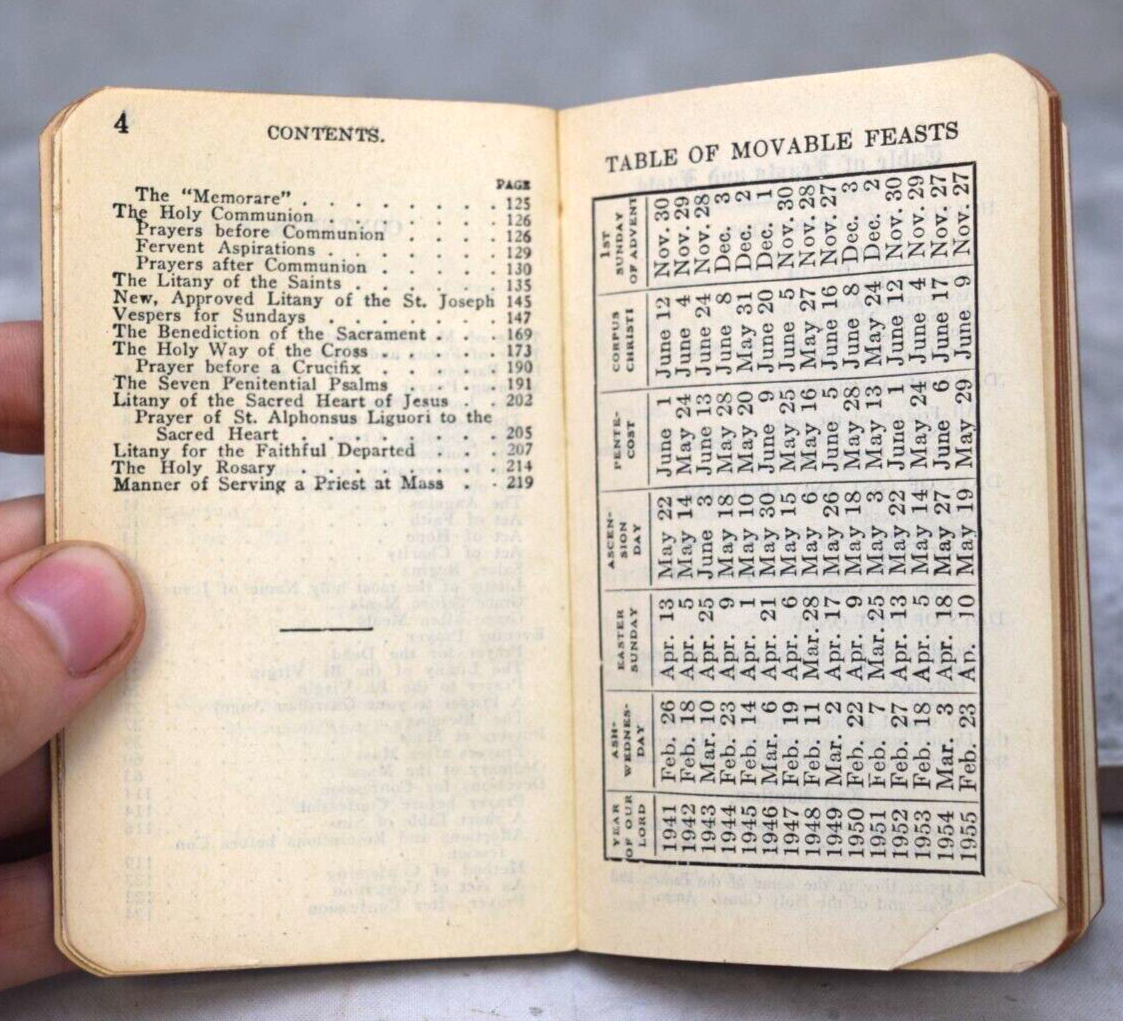 4
CONTENTS.
PAGE
The "Memorare" . . . . . . . . 125
The Holy Communion . . . . . . . 126
Prayers before Communion . . . . 126
Fervent Aspirations . . . . . . . 129
Prayers after Communion . . . . . 130
The Litany of the Saints . . . . . . 135
New, Approved Litany of the St. Joseph 145
Vespers for Sundays . . . . . . . 147
The Benediction of the Sacrament . . . 169
The Holy Way of the Cross . . . . . 173
Prayer before a Crucifix . . . . . 190
The Seven Penitential Psalms . . . . 191
Litany of the Sacred Heart of Jesus . . 202
Prayer of St. Alphonsus Liguori to the
Sacred Heart . . . . . . . . 205
Litany for the Faithful Departed . . . 207
The Holy Rosary . . . . . . . . 214
Manner of Serving a Priest at Mass . . 219
TABLE OF MOVABLE FEASTS
YEAR ASH- EASTER ASCEN- PENTE- CORPUS 1ST
OF OUR WEDNES- SUNDAY SION COST CHRISTI SUNDAY
LORD DAY DAY OF ADVENT
1941 Feb. 26 Apr. 13 May 22 June 1 June 12 Nov. 30
1942 Feb. 18 Apr. 5 May 14 May 24 June 4 Nov. 29
1943 Mar. 10 Apr. 25 June 3 June 13 June 24 Nov. 28
1944 Feb. 23 Apr. 9 May 18 May 28 June 8 Dec. 3
1945 Feb. 14 Apr. 1 May 10 May 20 May 31 Dec. 2
1946 Mar. 6 Apr. 21 May 30 June 9 June 20 Dec. 1
1947 Feb. 19 Apr. 6 May 15 May 25 June 5 Nov. 30
1948 Feb. 11 Mar. 28 May 6 May 16 May 27 Nov. 28
1949 Mar. 2 Apr. 17 May 26 June 5 June 16 Nov. 27
1950 Feb. 22 Apr. 9 May 18 May 28 June 8 Dec. 3
1951 Feb. 7 Mar. 25 May 3 May 13 May 24 Dec. 2
1952 Feb. 27 Apr. 13 May 22 June 1 June 12 Nov. 30
1953 Feb. 18 Apr. 5 May 14 May 24 June 4 Nov. 29
1954 Mar. 3 Apr. 18 May 27 June 6 June 17 Nov. 27
1955 Feb. 23 Ap. 10 May 19 May 29 June 9 Nov. 27